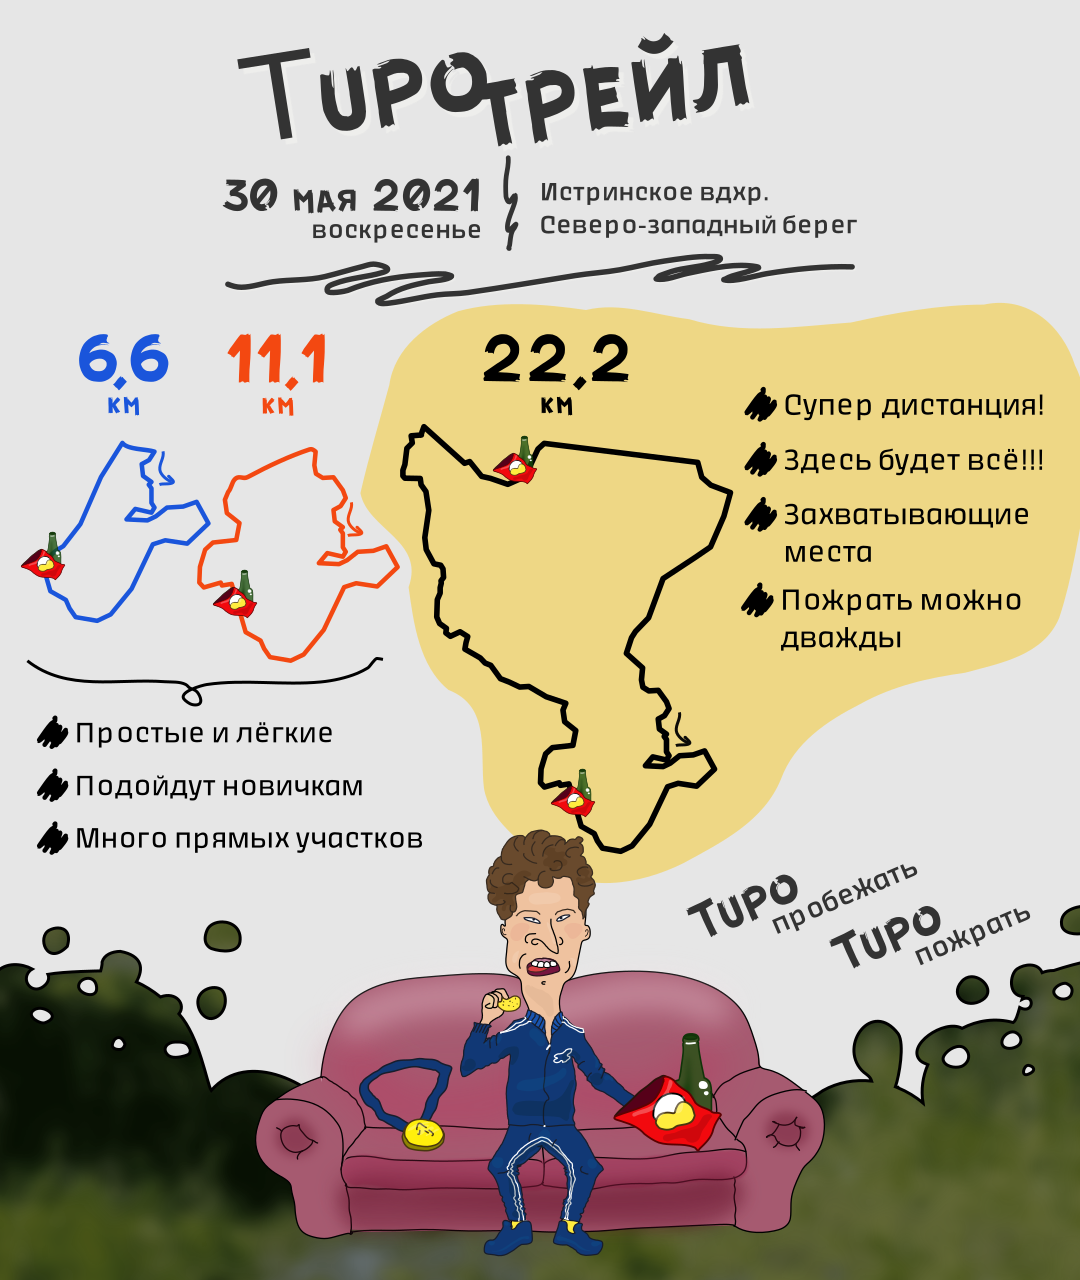 Тиротрейл
30 мая 2021
воскресенье
Истринское вдхр.
Северо-западный берег
6,6
км
11,1
км
22,2
км
Супер дистанция!
Здесь будет всё!!!
Захватывающие
места
Пожрать можно
дважды
Простые и лёгкие
Подойдут новичкам
Много прямых участков
Тиро
пробежать
Тиро
пожрать